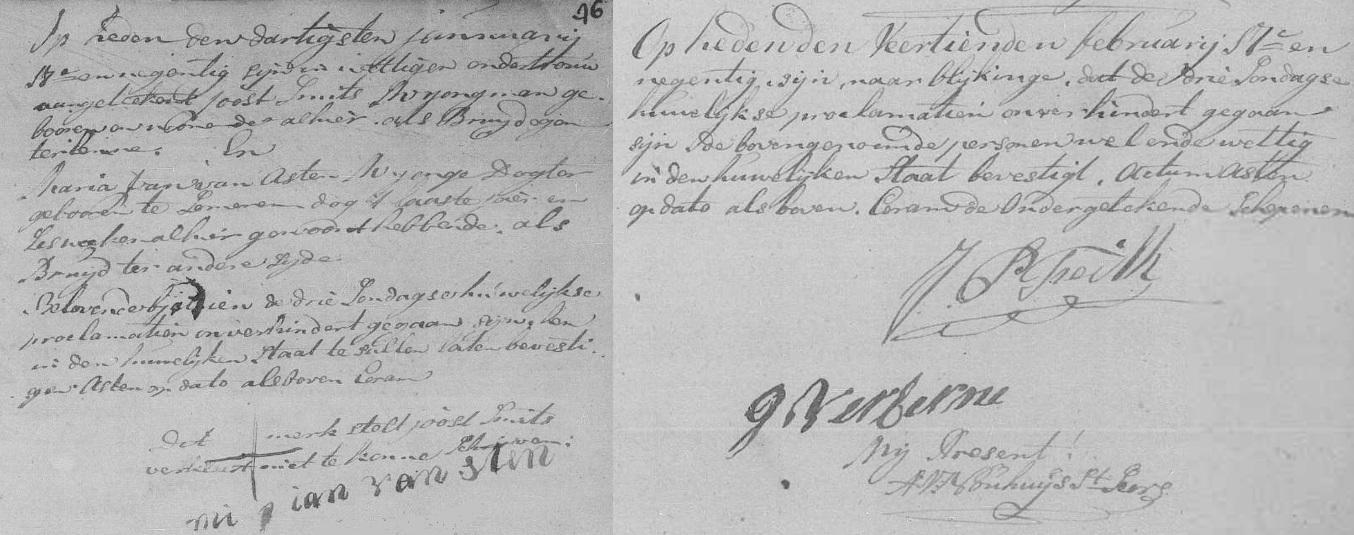 46
Op heden den dartigsten januuarij
17c en negentig sijn in wettigen ondertrouw
aangetekent Joost Smits Jongman ge-
booren en woonende alhier als Bruydegom
ter eenne. En
Maria Jan van Asten Jonge Dogter
gebooren te Zomeren dog 't laaste jaer en
Zes weeken alhier gewoont hebbende, als
Bruyd ter andere zyde
Belovende bij sien de drie Sondagse huwelijkse
proclamatien onverhindert gegaan sijn, hen
in den huwelijken Staat te sullen laten bevesti-
gen Asten op dato als boven Coram
Dit merk stelt joost Smits
verklaart niet te konne Schrijven:
mi jan van sten
Op heden den Veertienden februarij 17c en
negentig, sijn, naar blijkinge, dat de drie Sondagse
huwelijkse proclamatien onverhindert gegaan
sijn de bovengenoemde personen wel ende wettig
in den huwelijken Staat bevestigt. Actum Asten
op dato als boven. Coram de Ondergetekende Schepenen
g Verberne
Mij Present!